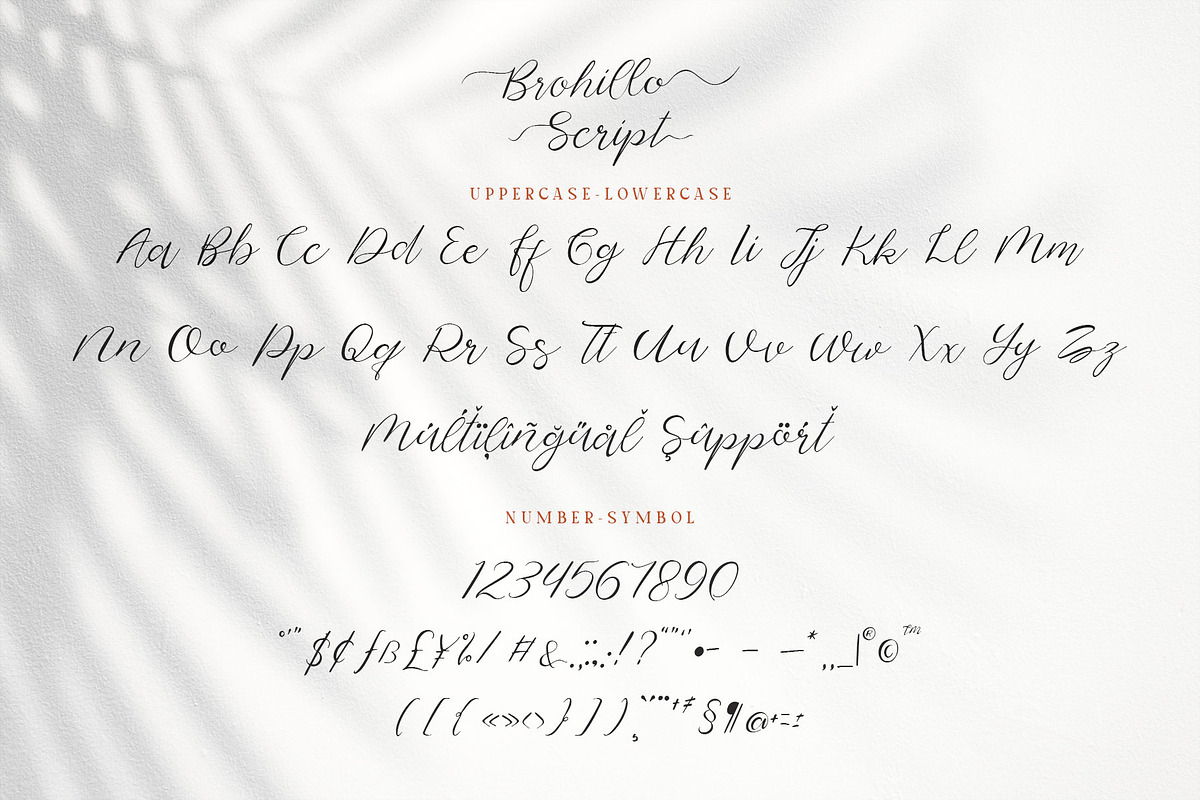 Brohillo
Script
UPPERCASE-LOWERCASE
Aa Bb Cc Dd Ee Ff Gg Hh Ii Jj Kk Ll Mm
Nn Oo Pp Qq Rr Ss Tt Uu Vv Ww Xx Yy Zz
NUMBER-SYMBOL
1234567890
°'" $¢ƒß£¥%/ #&.,:;…!?“”‘’•- – —*‚„_|®©™
([{«»‹›}])